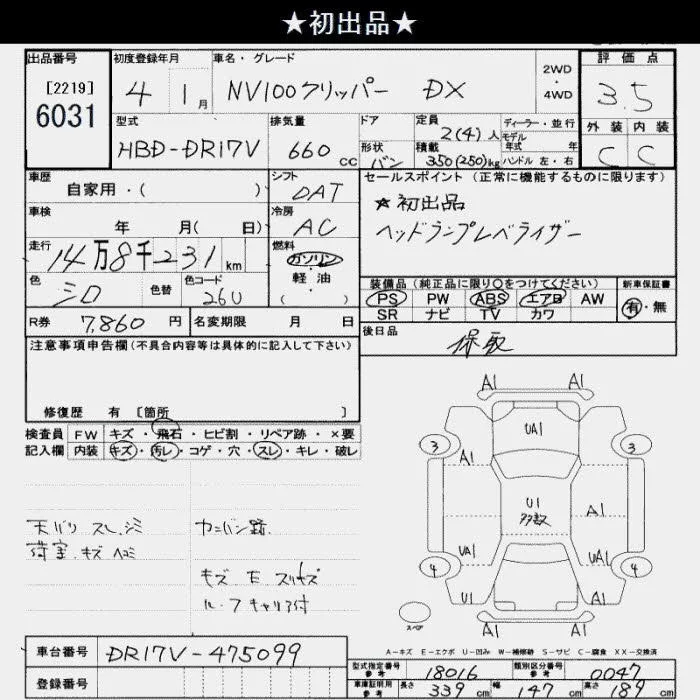 ★初出品★
出品番号
[2219]
6031
初度登録年月
4 1月
車名・グレード
NV100クリッパー DX
2WD
・
4WD
評価点
3.5
型式
HBD-DR17V
排気量
660 cc
ドア
形状
バン
定員
2(4)人
積載
350(250)kg
ディーラー・並行
モデル
年式 年
ハンドル 左・右
外装 内装
C C
車歴
自家用・( )
シフト
DAT
セールスポイント(正常に機能するものに限ります)
★初出品
ヘッドランプレベライザー
車検
年 月( 日)
冷房
AC
走行
14万8千231km
燃料
ガソリン
・
軽油
( )
色
シロ
色替
色コード
26U
装備品(純正品に限り〇をつけてください)
PS PW ABS エアB AW
SR ナビ TV カワ
新車保証書
有・無
R券 7,860 円
名変期限 月 日
後日品
保取
注意事項申告欄(不具合内容等は具体的に記入して下さい)
修復歴 有 [箇所 ]
検査員 FW キズ・飛石・ヒビ割・リペア跡・×要
記入欄 内装 キズ・汚レ・コゲ・穴・スレ・キレ・破レ
天バリ スレ.シミ
荷室.キズ ヘコミ
カンバン跡
キズ E スリキズ
ルーフキャリア付
A1 A1
UA1
3 3
A1
U1
多数
A1
UA1 UA1
4 4
A1 A1
スペア
A-キズ E-エクボ U-凹み W-補修跡 S-サビ C-腐食 XX-交換済
車台番号 DR17V-475099
登録番号
型式指定番号
参考
18016
類別区分番号
参考
0047
車庫証明用
参考
長さ 339 cm 幅 147 cm 高さ 189 cm